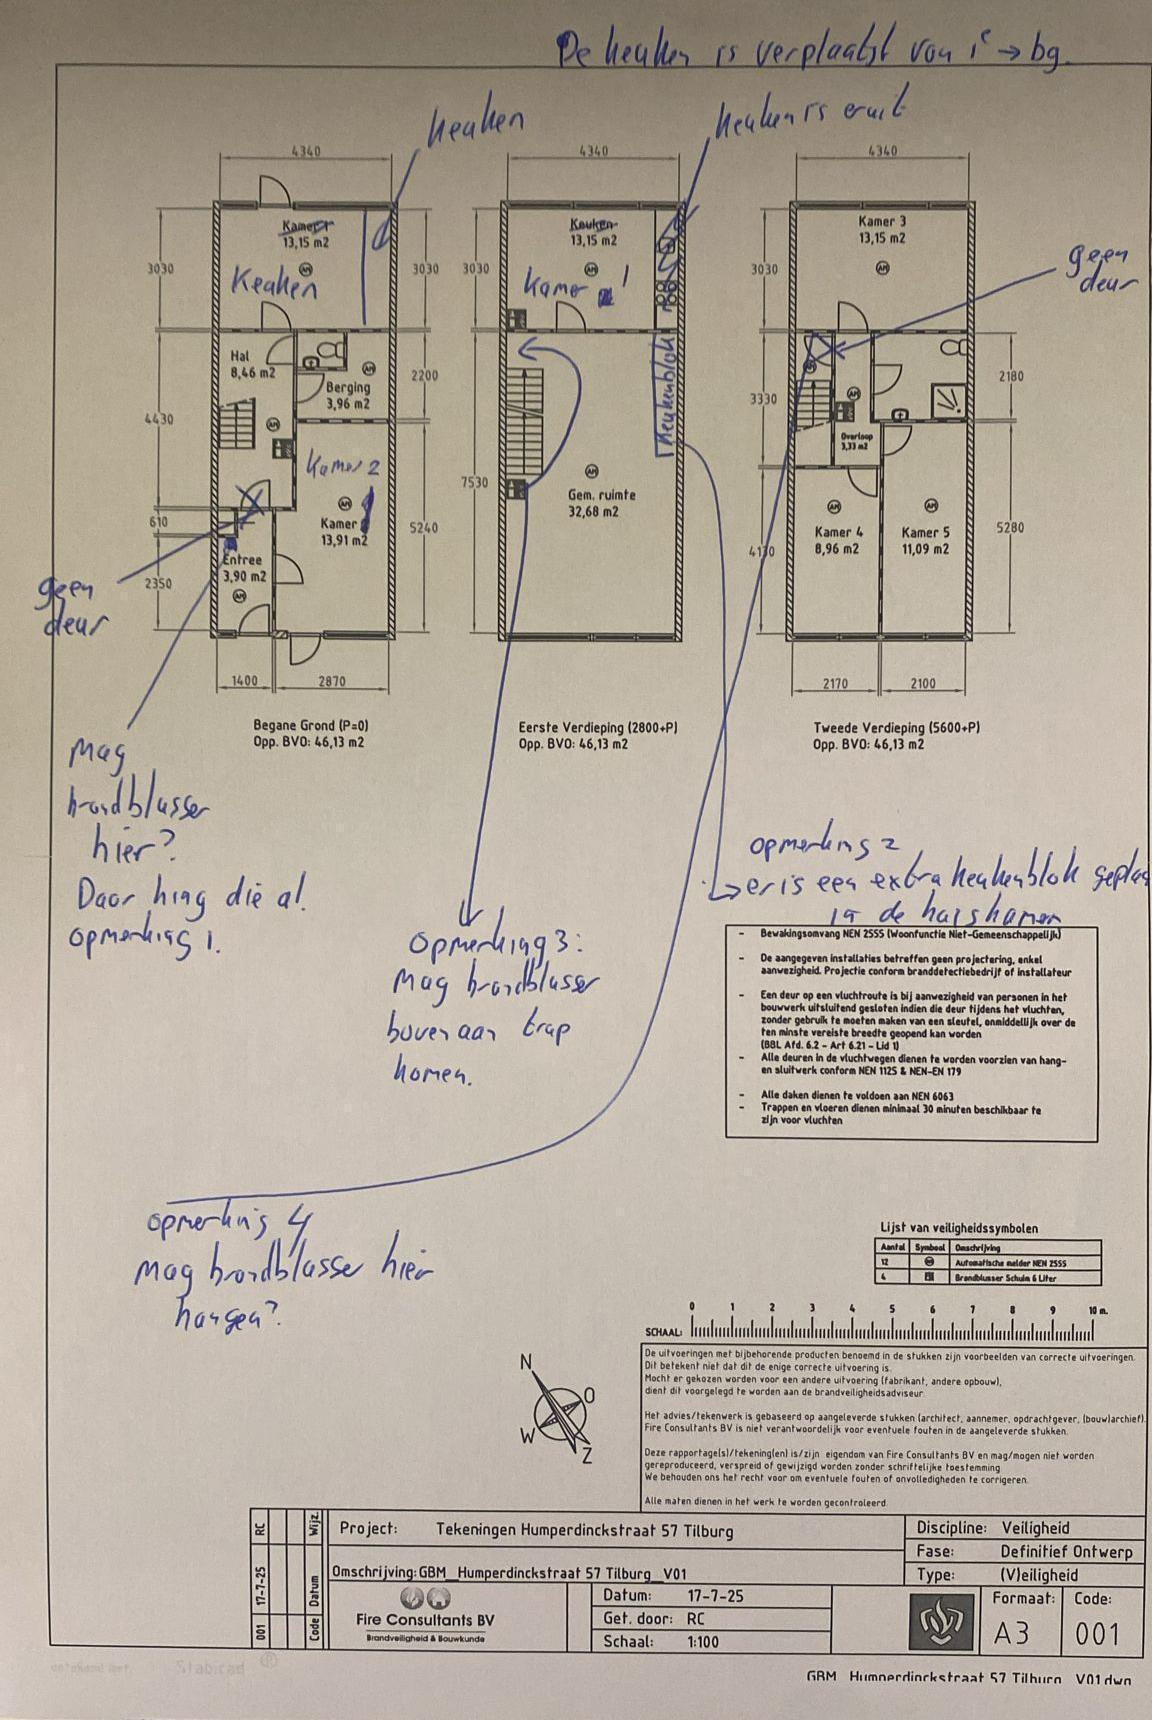 De keuken is verplaatst van 1e → bg.
keuken
keuken is eruit
4340
4340
4340
Kamer 1
13,15 m2
AM
Keuken
Keuken
13,15 m2
AM
Kamer 1
Kamer 3
13,15 m2
AM
geen
deur
3030
3030
3030
3030
Hal
8,46 m2
Berging
3,96 m2
AM
AM
2200
4430
keukenblok
3330
2180
AM
AM
Overloop
3,33 m2
Kamer 2
AM
Kamer
13,91 m2
7530
AM
Gem. ruimte
32,68 m2
AM
Kamer 4
8,96 m2
AM
Kamer 5
11,09 m2
610
5240
4130
5280
Entree
3,90 m2
AM
2350
geen
deur
1400
2870
2170
2100
Begane Grond (P=0)
Opp. BVO: 46,13 m2
Eerste Verdieping (2800+P)
Opp. BVO: 46,13 m2
Tweede Verdieping (5600+P)
Opp. BVO: 46,13 m2
Mag
brandblusser
hier?
Daar hing die al.
opmerking 1.
opmerking 2
er is een extra keukenblok geplaa
in de huiskamer
opmerking 3:
Mag brandblusser
boven aan trap
komen.
- Bewakingsomvang NEN 2555 (Woonfunctie Niet-Gemeenschappelijk)
- De aangegeven installaties betreffen geen projectering, enkel
aanwezigheid. Projectie conform branddetectiebedrijf of installateur
- Een deur op een vluchtroute is bij aanwezigheid van personen in het
bouwwerk uitsluitend gesloten indien die deur tijdens het vluchten,
zonder gebruik te moeten maken van een sleutel, onmiddellijk over de
ten minste vereiste breedte geopend kan worden
(BBL Afd. 6.2 - Art 6.21 - Lid 1)
- Alle deuren in de vluchtwegen dienen te worden voorzien van hang-
en sluitwerk conform NEN 1125 & NEN-EN 179
- Alle daken dienen te voldoen aan NEN 6063
- Trappen en vloeren dienen minimaal 30 minuten beschikbaar te
zijn voor vluchten
opmerking 4
Mag brandblusser hier
hangen?
Lijst van veiligheidssymbolen
Aantal Symbool Omschrijving
12 AM Automatische melder NEN 2555
4 Brandblusser Schuim 6 Liter
0 1 2 3 4 5 6 7 8 9 10 m.
SCHAAL:
N
O
W
Z
De uitvoeringen met bijbehorende producten benoemd in de stukken zijn voorbeelden van correcte uitvoeringen.
Dit betekent niet dat dit de enige correcte uitvoering is.
Mocht er gekozen worden voor een andere uitvoering (fabrikant, andere opbouw),
dient dit voorgelegd te worden aan de brandveiligheidsadviseur.
Het advies/tekenwerk is gebaseerd op aangeleverde stukken (architect, aannemer, opdrachtgever, (bouw)archief).
Fire Consultants BV is niet verantwoordelijk voor eventuele fouten in de aangeleverde stukken.
Deze rapportage(s)/tekening(en) is/zijn eigendom van Fire Consultants BV en mag/mogen niet worden
gereproduceerd, verspreid of gewijzigd worden zonder schriftelijke toestemming.
We behouden ons het recht voor om eventuele fouten of onvolledigheden te corrigeren.
Alle maten dienen in het werk te worden gecontroleerd.
001 17-7-25 RC
Code Datum Wijz.
Project: Tekeningen Humperdinckstraat 57 Tilburg
Omschrijving: GBM_Humperdinckstraat 57 Tilburg_V01
Fire Consultants BV
Brandveiligheid & Bouwkunde
Datum: 17-7-25
Get. door: RC
Schaal: 1:100
Discipline: Veiligheid
Fase: Definitief Ontwerp
Type: (V)eiligheid
Formaat: A3
Code: 001
getekend met Stabicad ®
GBM_Humperdinckstraat 57 Tilburg_V01.dwg